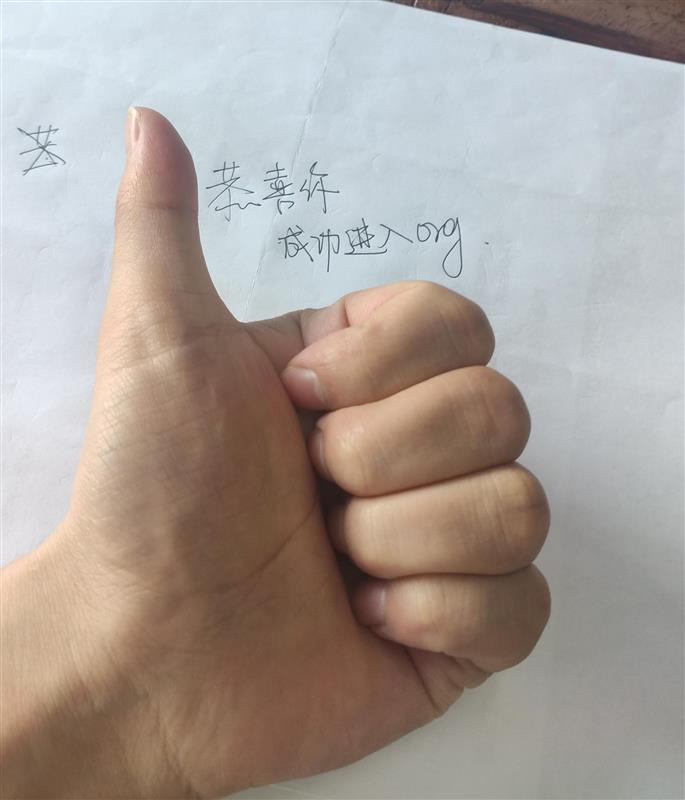 恭喜你
成功进入org.